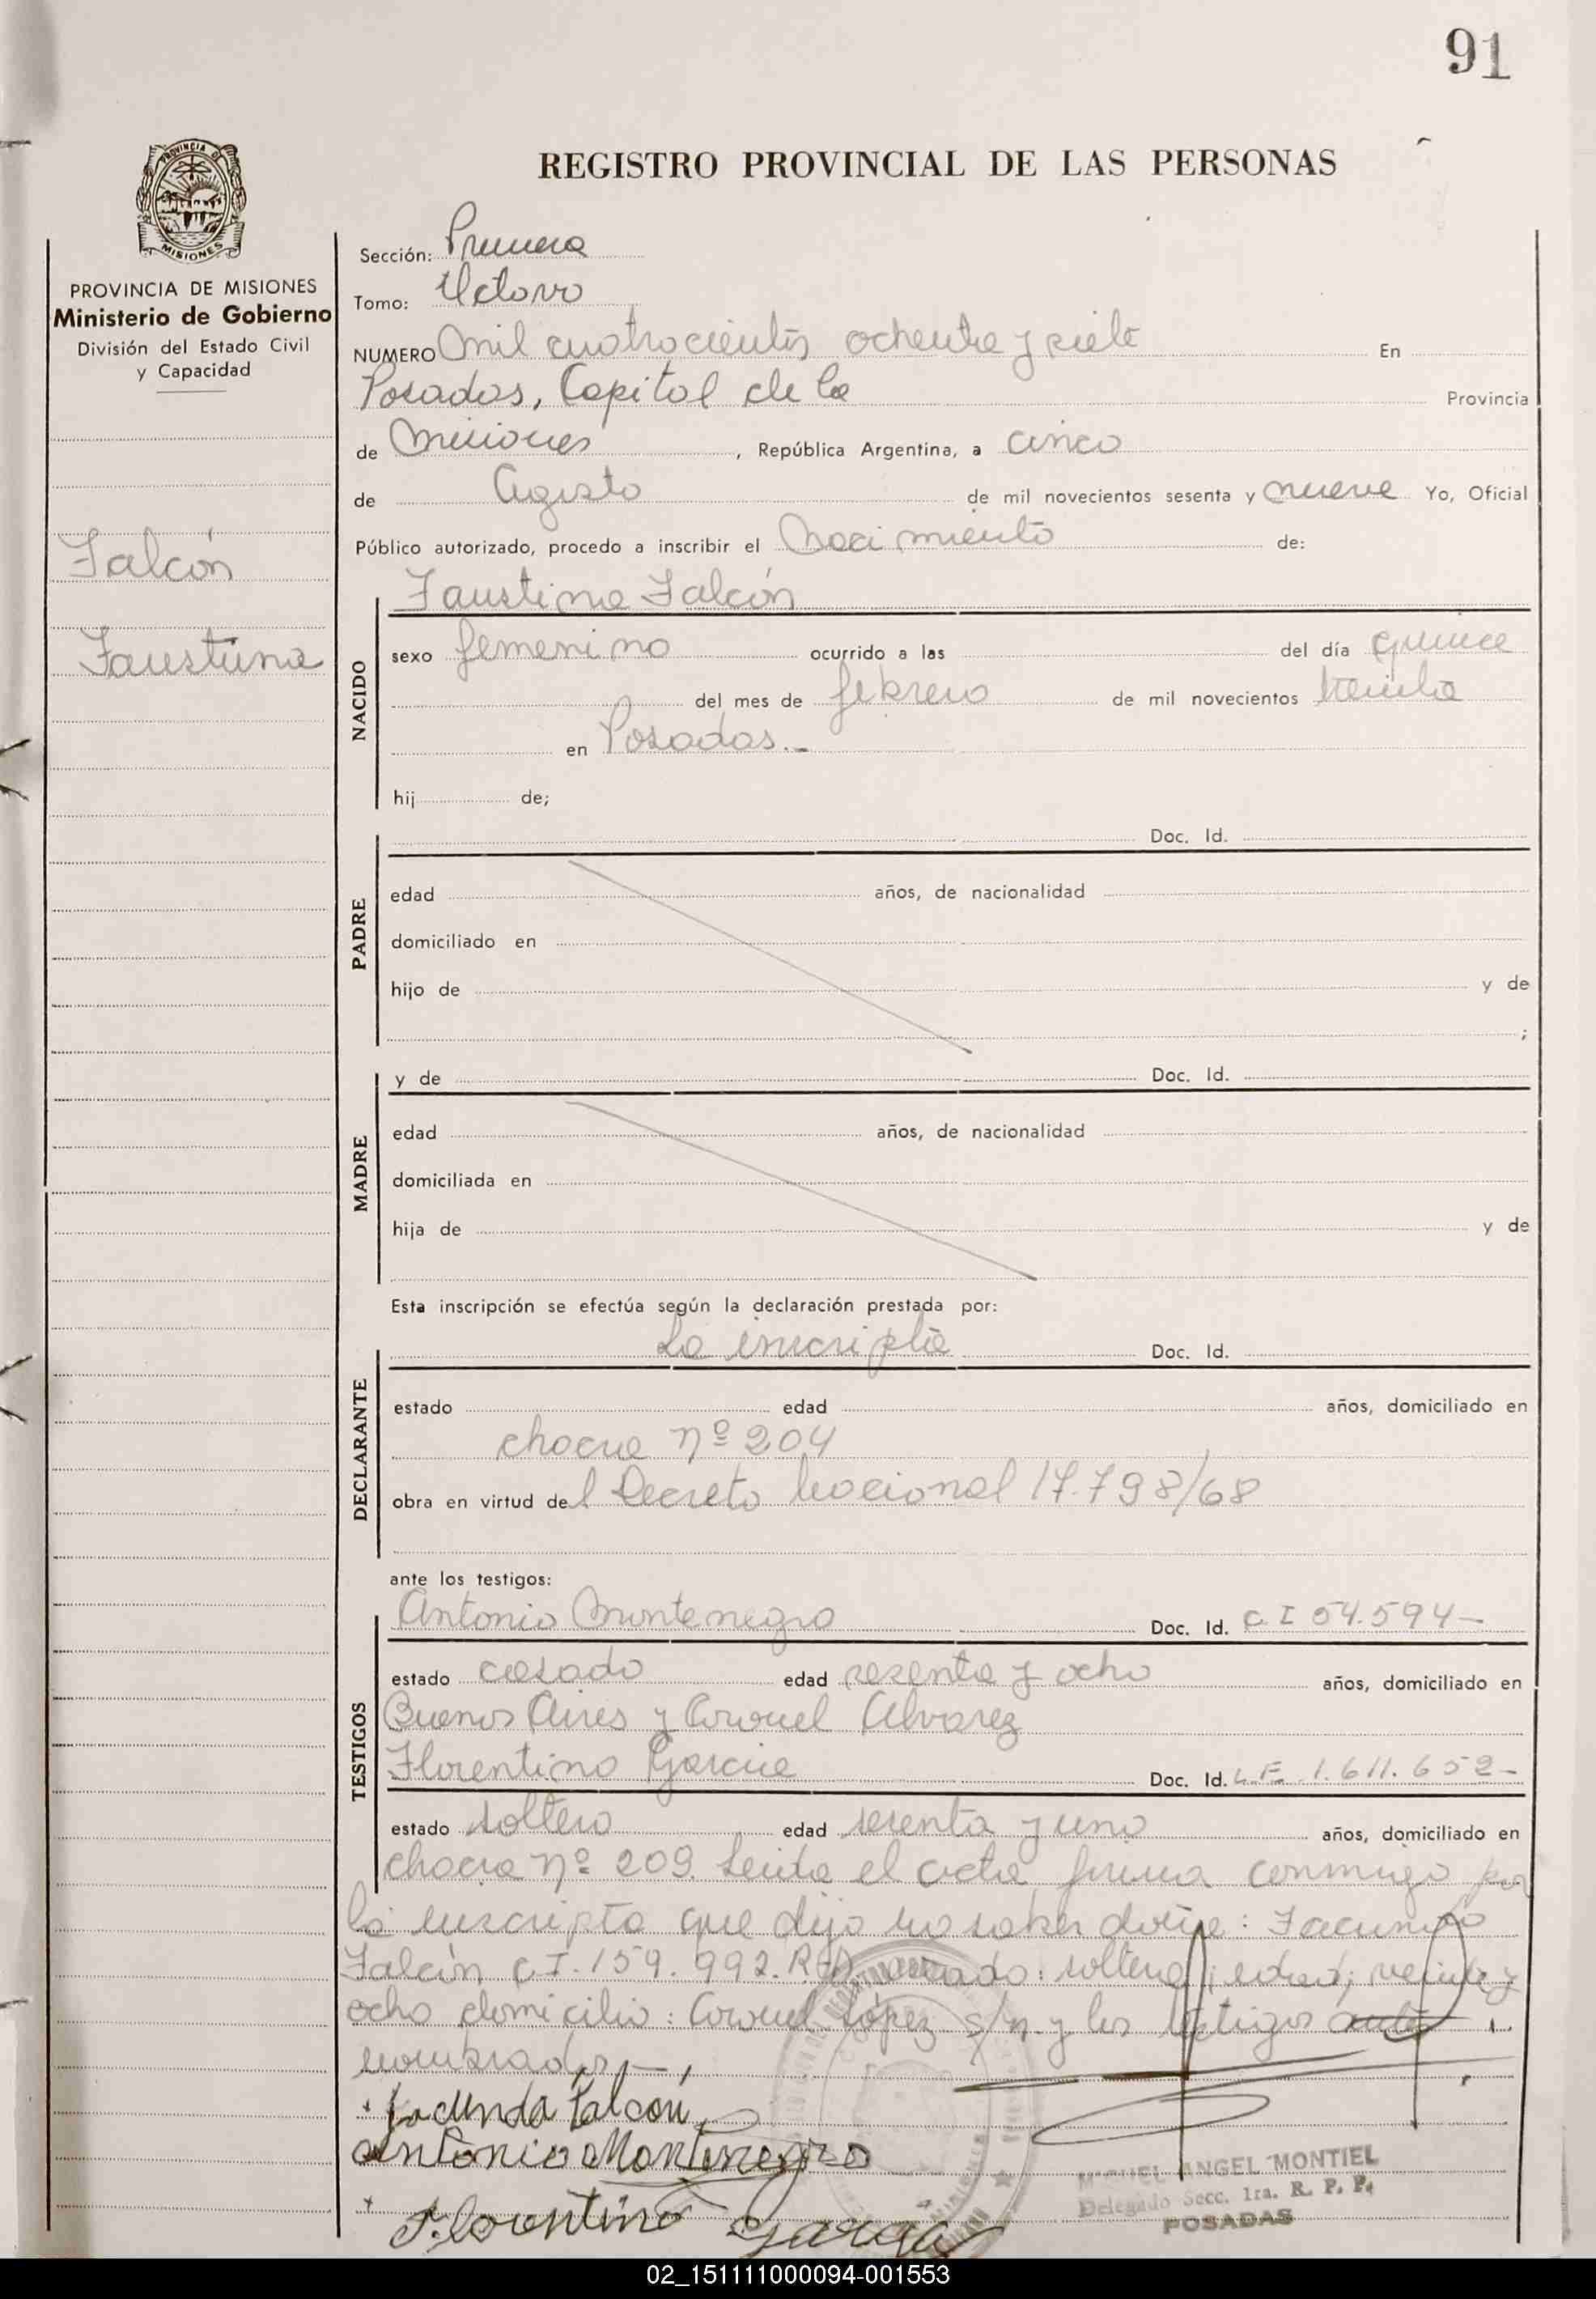 91
PROVINCIA DE
MISIONES
REGISTRO PROVINCIAL DE LAS PERSONAS
PROVINCIA DE MISIONES
Ministerio de Gobierno
División del Estado Civil
y Capacidad
Falcón
Faustina
Sección: Primera
Tomo: Octavo
NUMERO Mil cuatrocientos ochenta y siete En
Posadas, Capital de la Provincia
de Misiones, República Argentina, a cinco
de Agosto de mil novecientos sesenta y nueve Yo, Oficial
Público autorizado, procedo a inscribir el Nacimiento de:
NACIDO
Faustina Falcón
sexo femenino ocurrido a las del día quince
del mes de febrero de mil novecientos treinta
en Posadas.-
hij de;
PADRE
Doc. Id.
edad años, de nacionalidad
domiciliado en
hijo de y de
;
MADRE
y de Doc. Id.
edad años, de nacionalidad
domiciliada en
hija de y de
Esta inscripción se efectúa según la declaración prestada por:
DECLARANTE
La inscripta Doc. Id.
estado edad años, domiciliado en
chacra nº 204
obra en virtud del Decreto Nacional 17.798/68
ante los testigos:
TESTIGOS
Antonio Montenegro Doc. Id. C I 54.594-
estado casado edad sesenta y ocho años, domiciliado en
Buenos Aires y Coronel Alvarez
Florentino Garcia Doc. Id. L.E. 1.611.652-
estado soltero edad sesenta y uno años, domiciliado en
chacra nº 209. Leida el acta, firma conmigo por
la inscripta que dijo no saber : Facunda
Falcón C.I. 159.992. estado: soltera; edad; veinte y
ocho domicilio: Coronel López s/n. y los testigos antes
nombrados.-
Facunda Falcón
Antonio Montenegro
Florentino Garcia
MIGUEL ANGEL MONTIEL
Delegado Secc. 1ra. R. P. P.
POSADAS
02_151111000094-001553